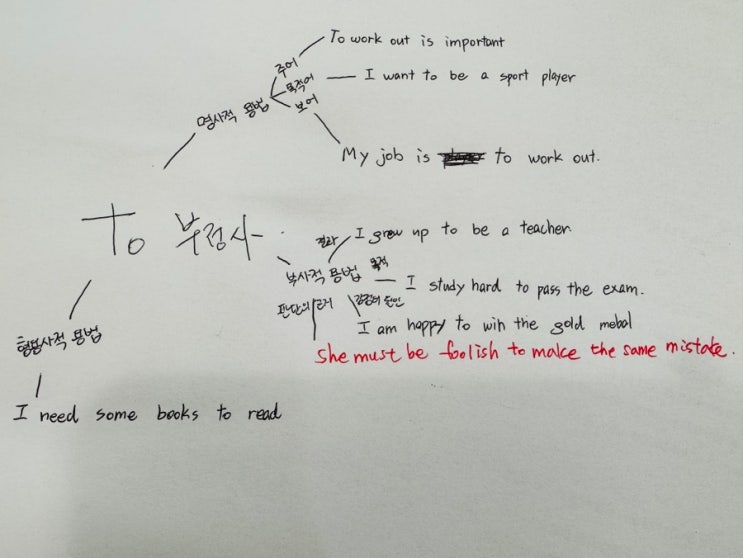 To work out is important
주어
목적어
I want to be a sport player
명사적 용법
보어
My job is to work out.
To 부정사
결과
I grew up to be a teacher
부사적 용법
목적
I study hard to pass the exam.
판단의 근거
감정의 원인
I am happy to win the gold mebal
She must be foolish to make the same mistake.
형용사적 용법
I need some books to read